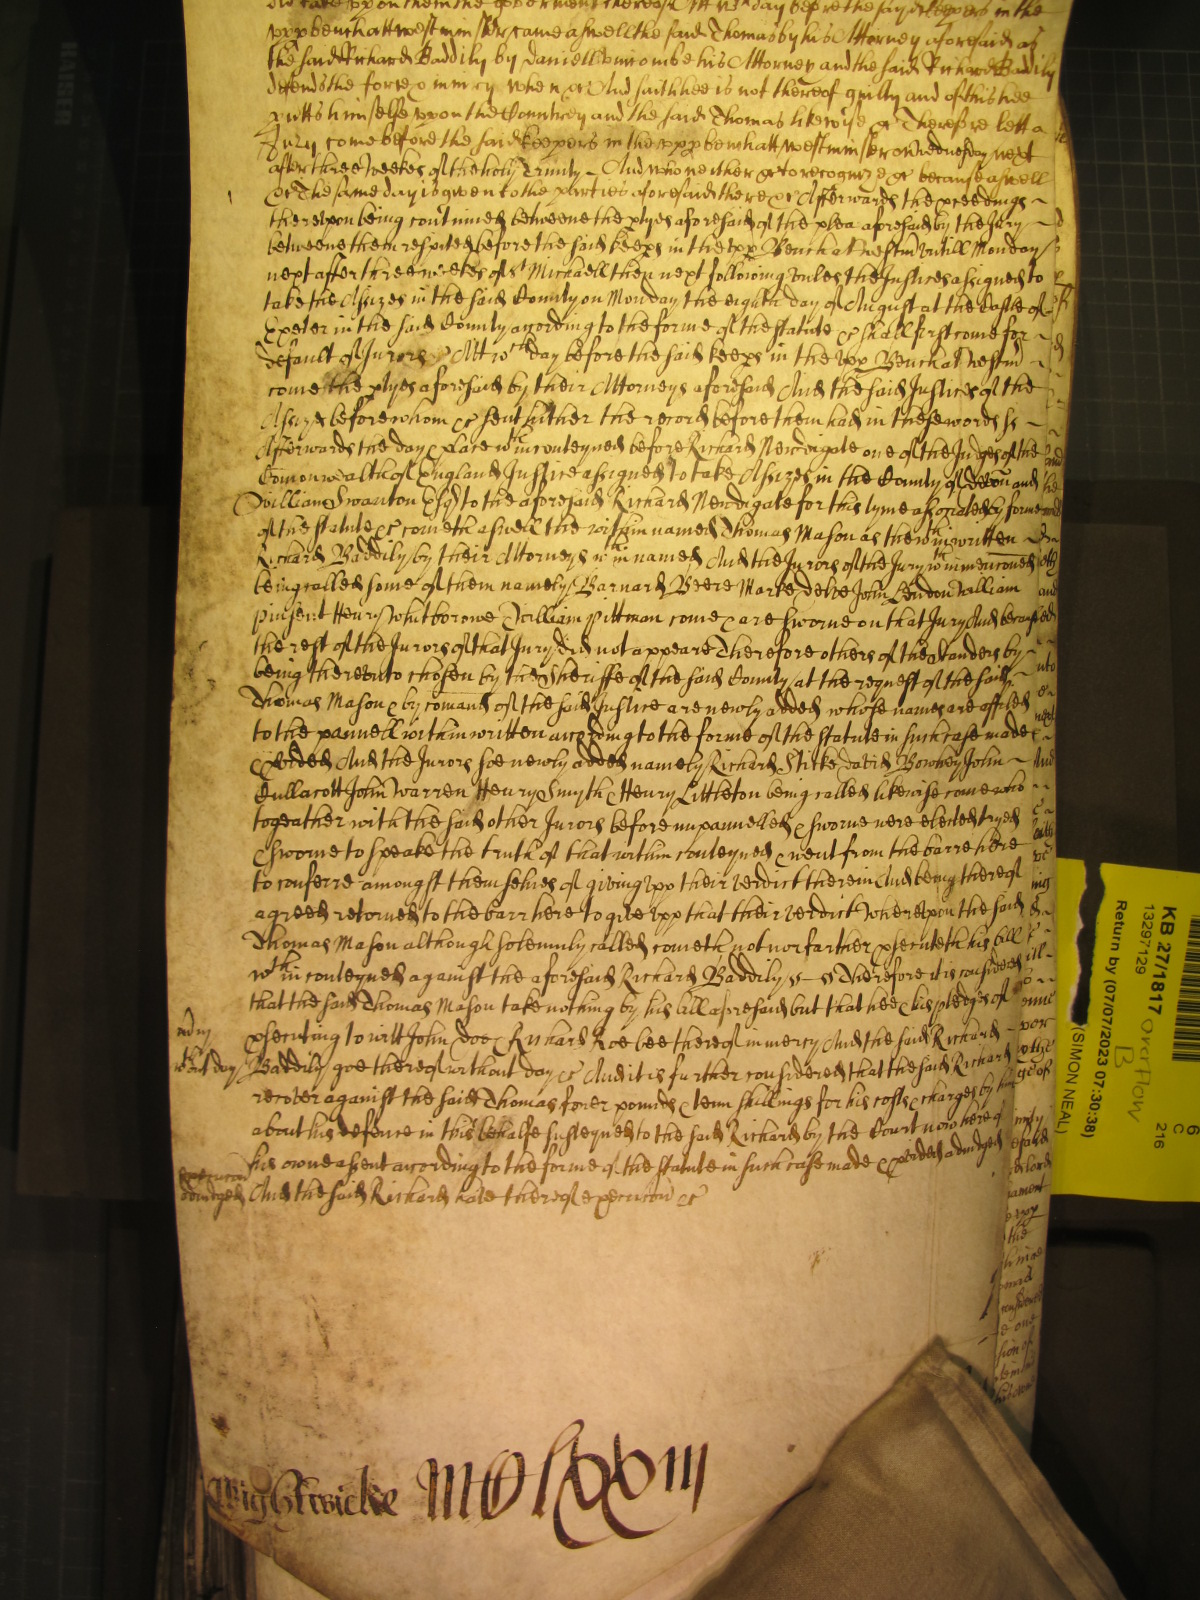 did take upon them the
upp bench att westminster came aswell the said Thomas by his Attorney aforesaid as
the said Richard Baddily by Daniell his Attorney and the said Richard Baddily
defends the force & iniury when &c And saith hee is not thereof guilty and of this hee
putts himselfe upon the Countrey and the said Thomas likewise &c Therefore lett a
Jury come before the said keepers in the upp bench att westminster on wednesday next
after three weekes of the holy Trinity And who neither &c to recognize &c because aswell
&c The same day is given to the parties aforesaid there &c Afterwards the proceedings
thereupon being continued betweene the ptyes aforesaid of the plea aforesaid by the Jury
betweene them respited before the said keeps in the upp Bench at westm untill Monday
next after three weekes of St Michaell then next following unles the Justices assigned to
take the Assizes in the said County on Monday the eighth day of August at the Castle of
Exeter in the said County according to the forme of the statute &c shall first come for
default of Jurors &c Att wch day before the said keeps in the upp Bench at westm
come the ptyes aforesaid by their Attorneys aforesaid And the said Justices of the
Assizes before whom &c sent hither the record before them had in these words ss
Afterwards the day & place wthin conteyned before Richard Newdigate one of the Judges of the
Comonwealth of England Justice assigned to take Assizes in the County of Devon and
William Swanton Esqr to the aforesaid Richard Newdigate for this tyme associated by forme
of the statute &c cometh aswell the within named Thomas Mason as the wthin written
Richard Baddily by their Attorneys wthin named And the Jurors of the Jury wthin menconed
being called some of them namely Barnard Beere Marke John Lendon William
pinsent Henry Whitborowe William pittman come & are sworne on that Jury And because
the rest of the Jurors of that Jury did not appeare Therefore others of the standers by
being thereunto chosen by the Sheriffe of the said County at the request of the said
Thomas Mason & by comand of the said Justice are newly added whose names are affiled
to the pannell within written according to the forme of the statute in such case made
& pvided And the Jurors soe newly added namely Richard David Bowhey John
Cullacott John Warren Henry Smyth & Henry Littleton being called likewise come who
togeather with the said other Jurors before impannelled & sworne were elected tryed
& sworne to speake the truth of that within conteyned & went from the barre here
to conferre amongst themselves of giving upp their verdict therein And being thereof
agreed retorned to the barr here to give upp that their verdict Whereupon the said
Thomas Mason although solemnly called cometh not nor farther psecuteth his bill
wthin conteyned against the aforesaid Richard Baddily Therefore it is considered
that the said Thomas Mason take nothing by his bill aforesaid but that hee & his pledges of
psecuting to witt John Doe & Richard Roe bee thereof in mercy And the said Richard
Baddily goe thereof without day &c And it is further considered that the said Richard
recover against the said Thomas fower pounds & tenn shillings for his costs & charges by him
about his defence in this behalfe susteyned to the said Richard by the Court now here of
his owne assent according to the forme of the statute in such case made & pvided adiudged
And the said Richard have thereof execucon &c
mcy
without day
Execucon
adiudged
Wightwicke MDlxxiii
KB 27/1817
13297129
overflow
B
Return by (07/07/2023 07:30:38)
(SIMON NEAL)
216
6
C